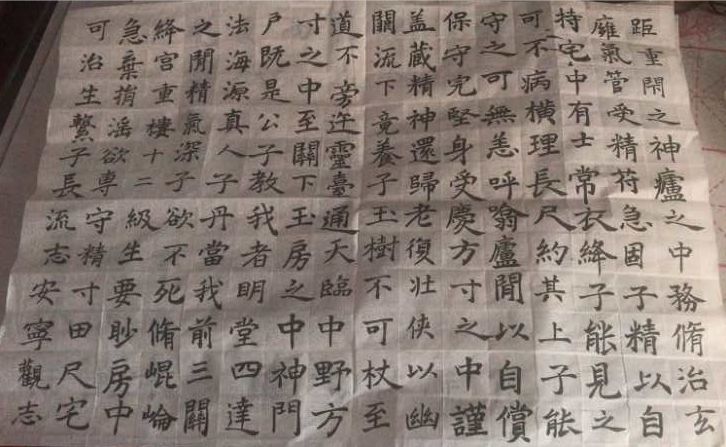 距重閇之神廬之中務脩治玄
癰氣管受精符急固子精以自
持宅中有士常衣絳子能見之
可不病橫理長尺約其上子能
守之可無恙呼噏廬間以自償
保守完堅身受慶方寸之中謹
盖蔵精神還歸老復壮俠以幽
關流下竟養子玉樹不可杖至
道不旁迕靈臺通天臨中野方
寸之中至關下玉房之中神門
户既是公子教我者明堂四達
法海源真人子丹當我前三關
之間精氣深子欲不死脩崐崘
絳宮重樓十二級生要眇房中
急棄捐滛欲專守精寸田尺宅
可治生繫子長流志安寧觀志